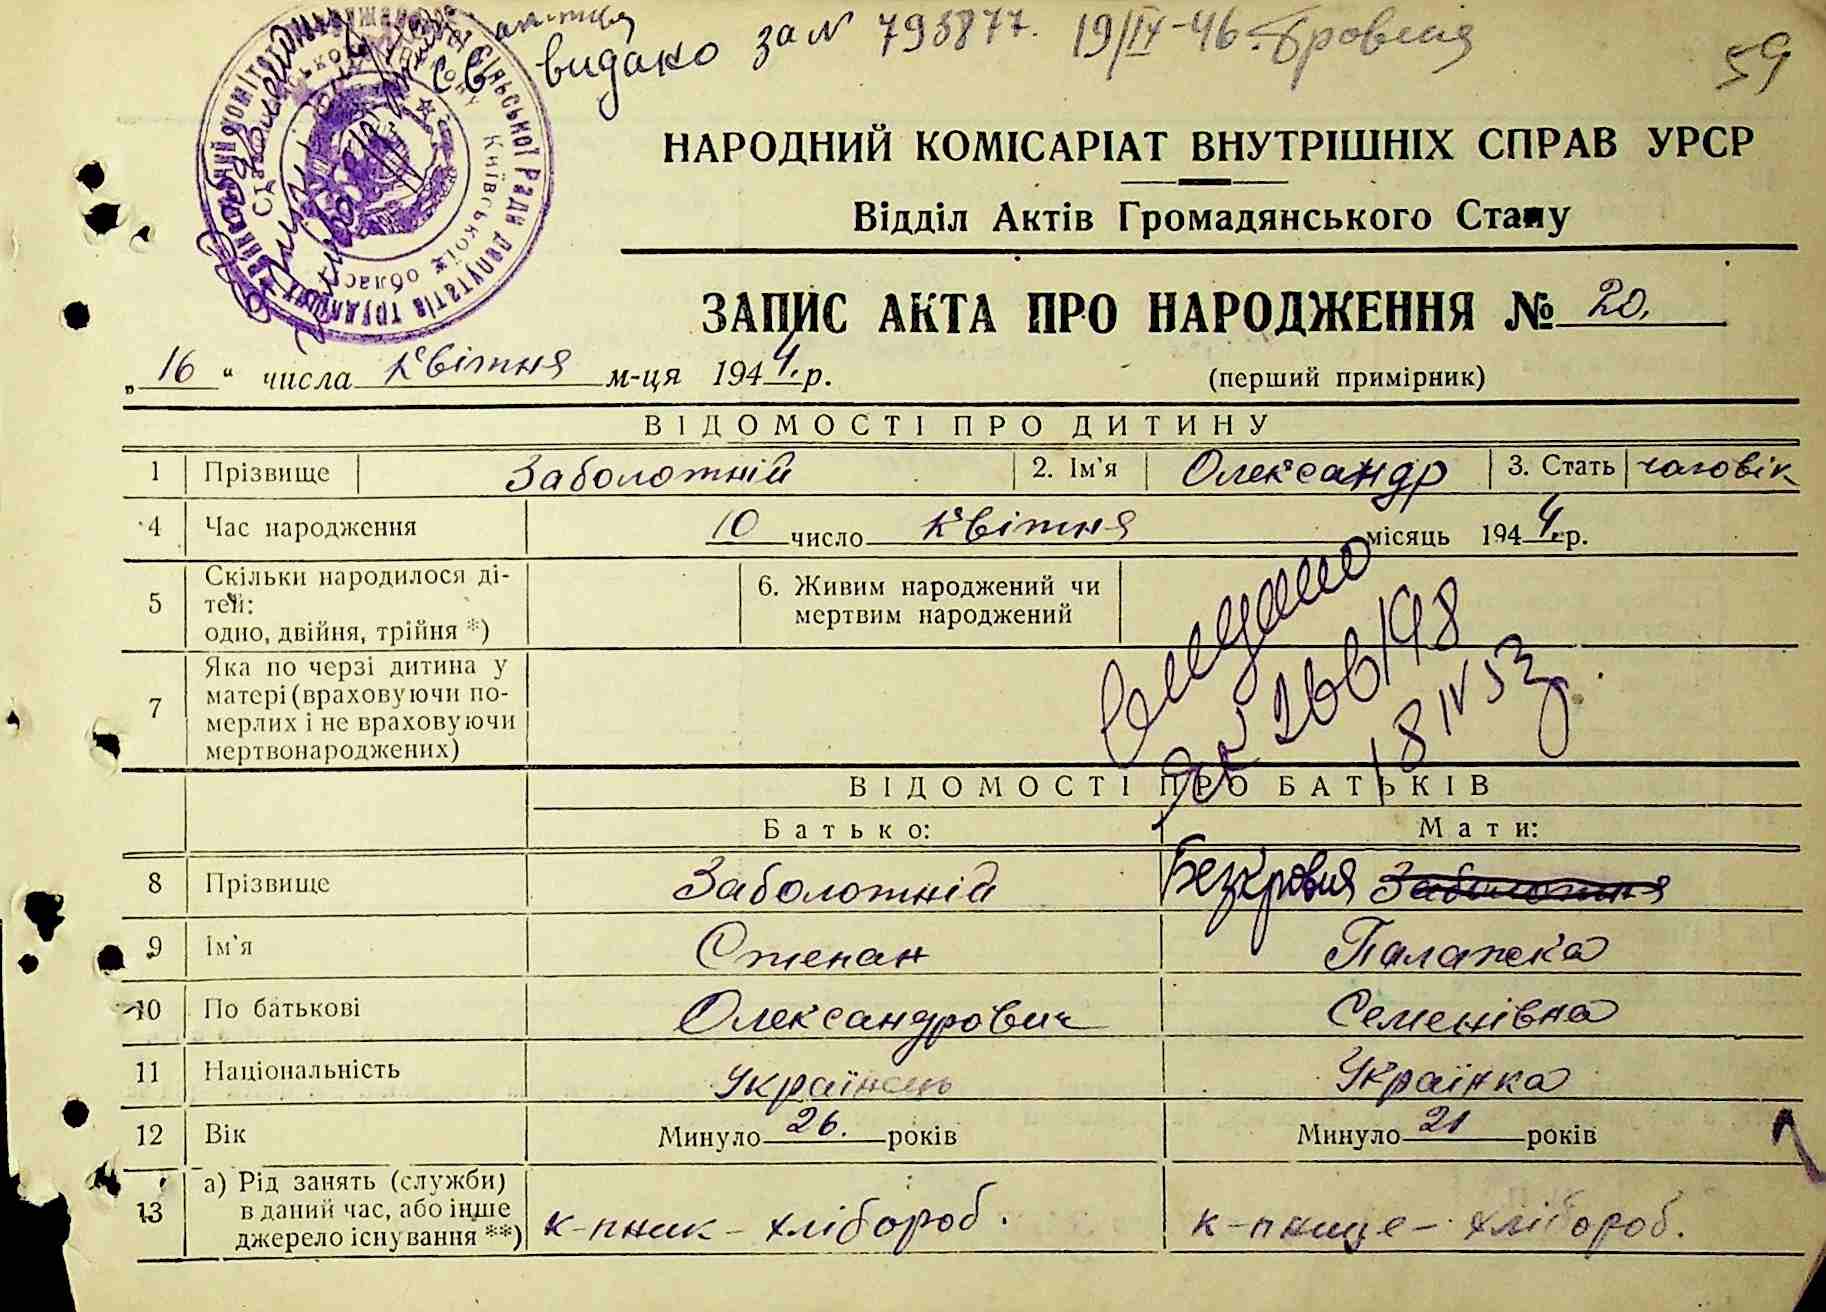 св видано за № 793877. 19/IX-46.
59
НАРОДНИЙ КОМІСАРІАТ ВНУТРІШНІХ СПРАВ УРСР
Відділ Актів Громадянського Стану
ЗАПИС АКТА ПРО НАРОДЖЕННЯ № 20.
„16“ числа квітня м-ця 1944.р.
(перший примірник)
ВІДОМОСТІ ПРО ДИТИНУ
1 Прізвище Заболотній 2. Ім'я Олександр 3. Стать чоловік
4 Час народження 10 число квітня місяць 1944.р.
5 Скільки народилося ді-
тей:
одно, двійня, трійня *)
6. Живим народжений чи
мертвим народжений
7 Яка по черзі дитина у
матері (враховуючи по-
мерлих і не враховуючи
мертвонароджених)
видано
266198
18 IV 53
ВІДОМОСТІ ПРО БАТЬКІВ
Батько: Мати:
8 Прізвище Заболотній Безкровня Заболотня
9 Ім'я Степан Палажка
10 По батькові Олександрович Семенівна
11 Національність Українець Українка
12 Вік Минуло 26. років Минуло 21 років
13 а) Рід занять (служби)
в даний час, або інше
джерело існування **)
к-пник - хлібороб. к-пнице - хлібороб.